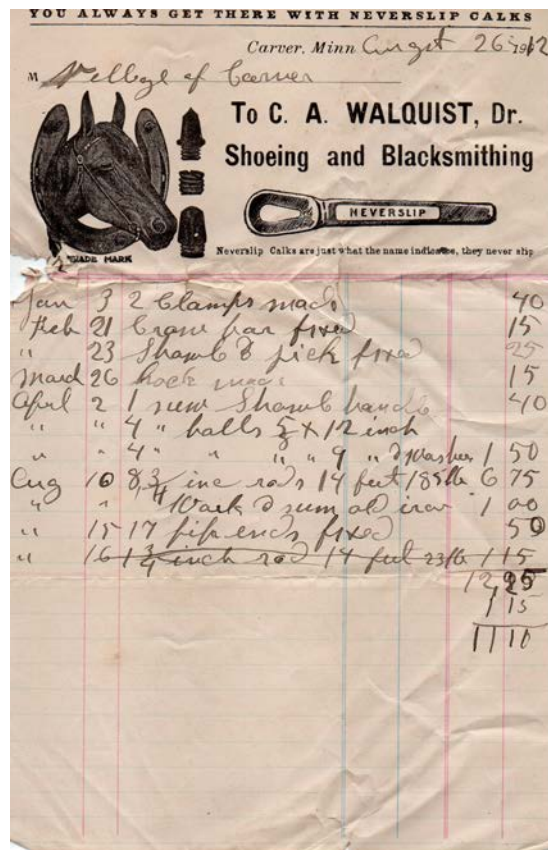 YOU ALWAYS GET THERE WITH NEVERSLIP CALKS
Carver, Minn Augst 26 1912
M Village of Carver
To C. A. WALQUIST, Dr.
Shoeing and Blacksmithing
NEVERSLIP
TRADE MARK
Neverslip Calks are just what the name indicates, they never slip
Jan 3 2 Clamps made 40
Feb 21 Crow bar fixed 15
" 23 & pick fixed 25
March 26 hock made 15
April 2 1 new handle 40
" " 4 " balls 5/8 X 12 inch
" " 4 " " " 9 " & washer 1 50
Aug 10 8 3/4 inc rods 14 feet 185 lb 6 75
" " Wark & sum old iron 1 00
" 15 17 pip ends fixed 50
" 16 1 3/4 inch rod 14 feet 23 lb 1 15
12 25
1 15
11 10